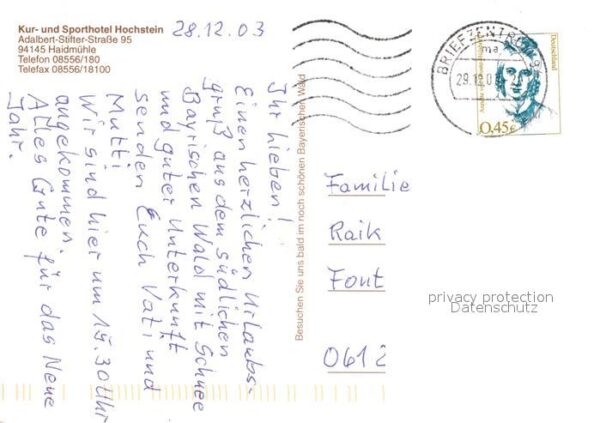 Kur- und Sporthotel Hochstein
Adalbert-Stifter-Straße 95
94145 Haidmühle
Telefon 08556/180
Telefax 08556/18100
28.12.03
Ihr lieben!
Einen herzlichen Urlaubs-
gruß aus dem südlichen
Bayrischen Wald mit Schnee
und guter Unterkunft
senden Euch Vati und
Mutti
Wir sind hier um 15.30 Uhr
angekommen.
Alles Gute für das Neue
Jahr.
Besuchen Sie uns bald im noch schönen Bayerischen Wald
BRIEFZENTRUM 94
ma
29.12.03
Deutschland
0,45€
Familie
Raik
Font
0612
privacy protection
Datenschutz